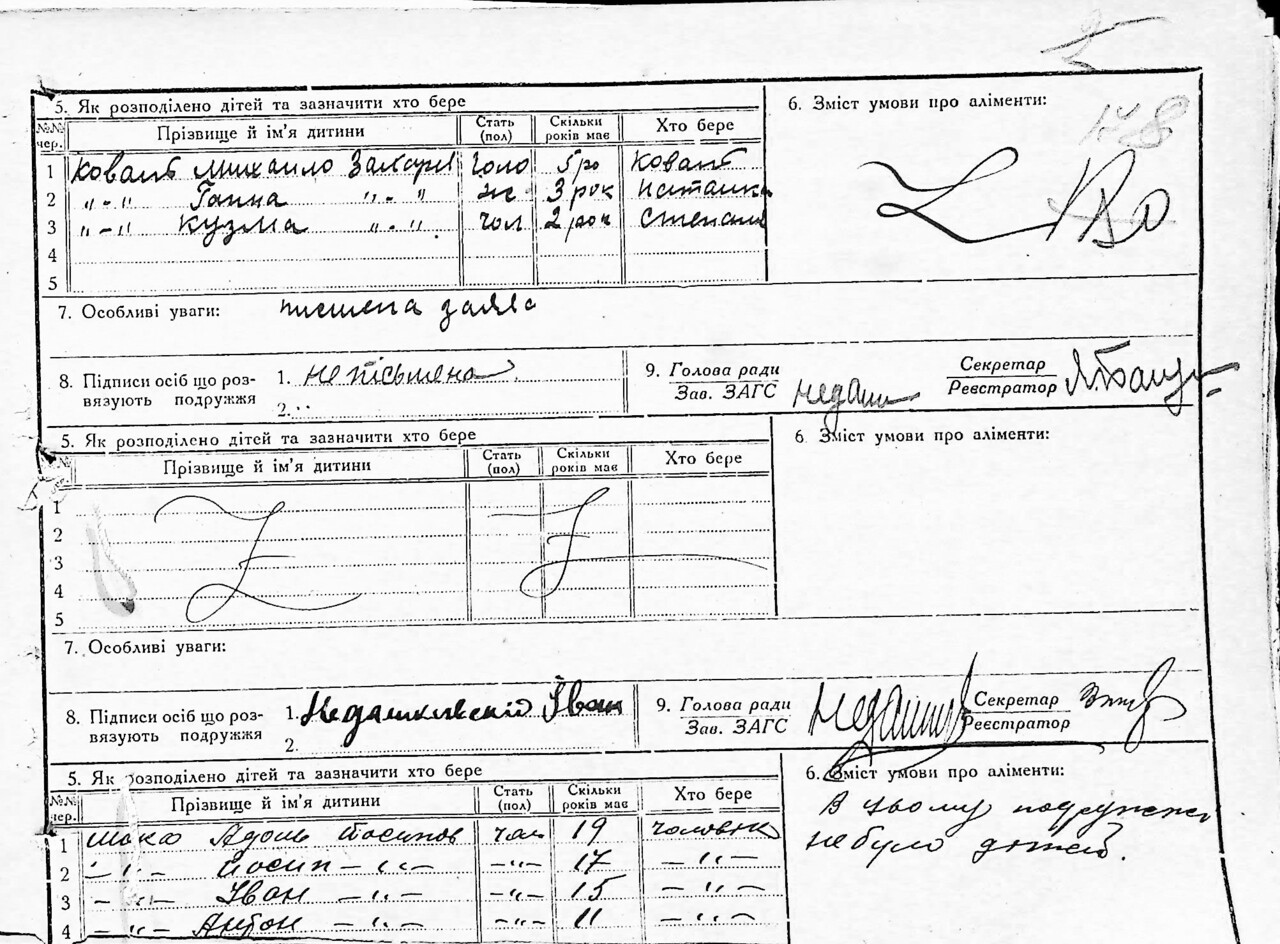 148
5. Як розподілено дітей та зазначити хто бере
6. Зміст умови про аліменти:
№№ чер. Прізвище й ім'я дитини Стать (пол) Скільки років має Хто бере
1 Коваль Михайло Захарів Чоло 5 ро Коваль
2 „-„ Ганна „-„ жс 3 рок Наталка
3 „-„ Кузма „-„ чол 2 рок Степанів
4
5
7. Особливі уваги:
8. Підписи осіб що роз-
вязують подружжя
1. не пісьмена
2.
9. Голова ради
Зав. ЗАГС
Секретар
Реєстратор
5. Як розподілено дітей та зазначити хто бере
6 Зміст умови про аліменти:
№№ Прізвище й ім'я дитини Стать (пол) Скільки років має Хто бере
1
2
3
4
5
7. Особливі уваги:
8. Підписи осіб що роз-
вязують подружжя
1. Недашківскій Іван
2.
9. Голова ради
Зав. ЗАГС
Секретар
Реєстратор
5. Як розподілено дітей та зазначити хто бере
6. Зміст умови про аліменти:
В цьому подружжі
не було дітей.
№№ чер. Прізвище й ім'я дитини Стать (пол) Скільки років має Хто бере
1 Йосипов чол 19 чоловік
2 -„- Йосип -„- -„- 17 -„-
3 -„- Іван -„- -„- 15 -„-
4 -„- Антон -„- -„- 11 -„-